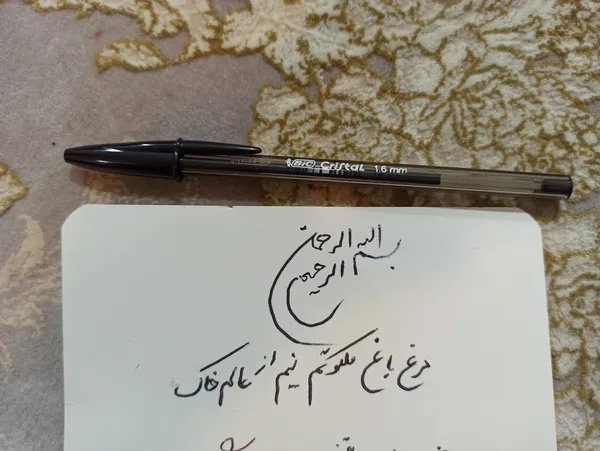 BIC Cristal 1.6 mm
بسم الله الرحمن الرحیم
مرغ باغ ملکوتم نیم از عالم خاک